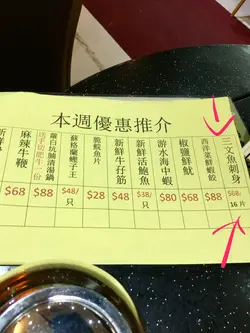 本週優惠推介
三文魚刺身
$68/
16片
西洋菜鮮蝦餃
$88
椒鹽鮮魷
$68
游水海中蝦
$80
新鮮活鮑魚
$38/
只
新鮮牛孖筋
$48
脆鯇魚片
$28
蘇格蘭蟶子王
$48/
只
蘿白坑腩清湯鍋
送手切肥牛一份
$88
麻辣牛鞭
$68